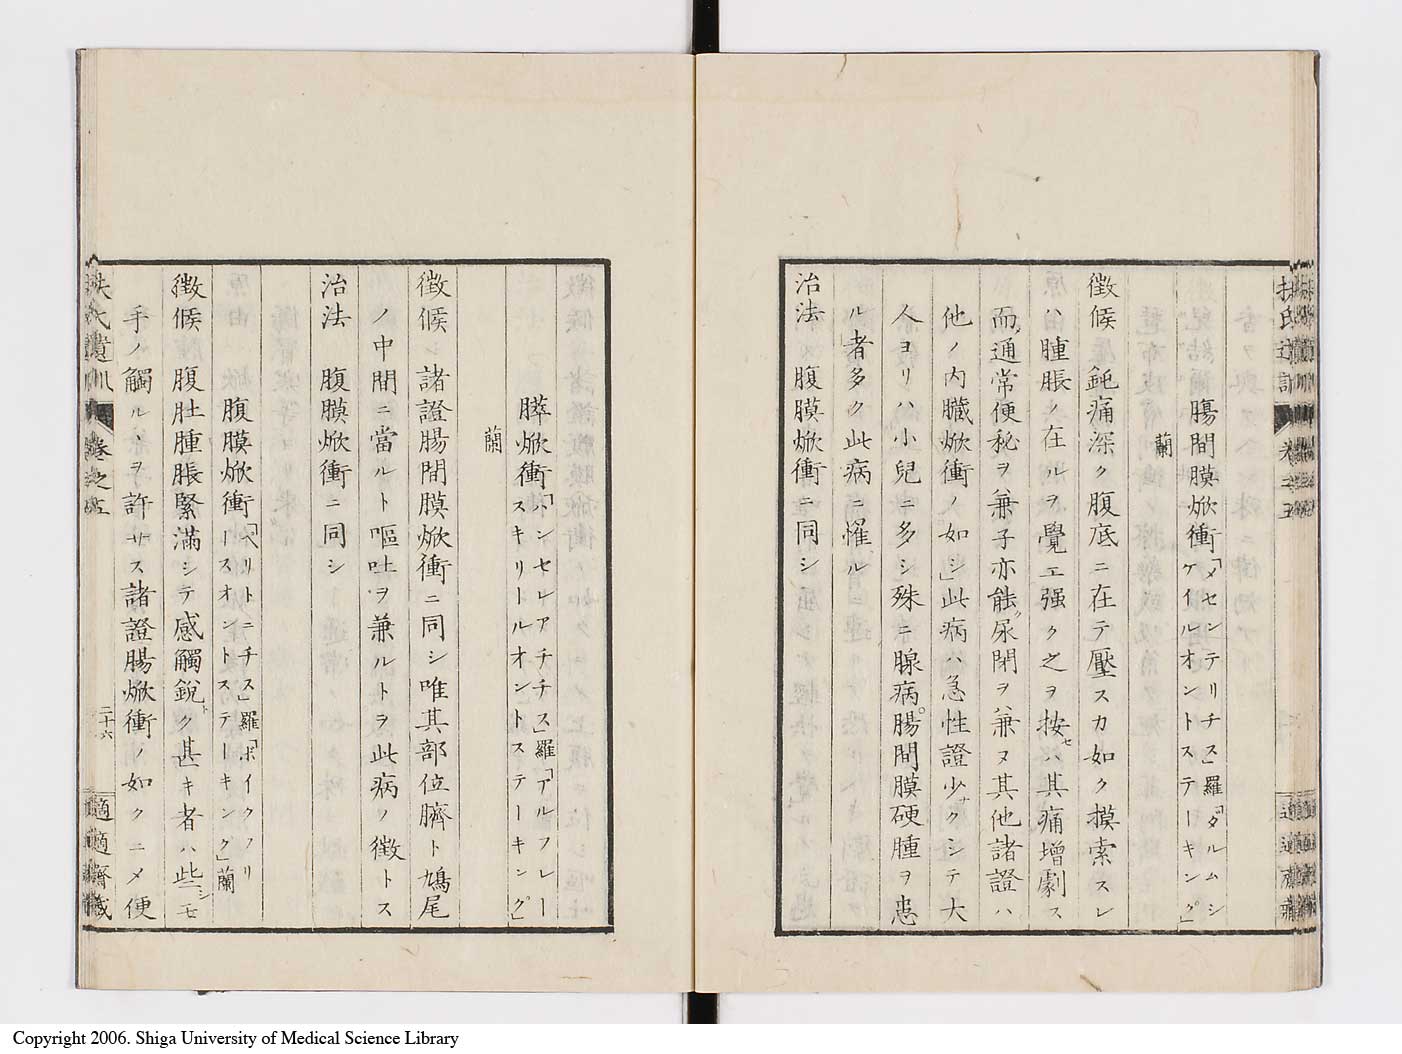 腸間膜焮衝「メセンテリチス」羅「ダルムシ
ケイルオントステーキング」
蘭
徴候 鈍痛深ク腹底ニ在テ壓スカ如ク摸索スレ
ハ腫脹ノ在ルヲ覺エ强ク之ヲ按セハ其痛增劇ス
而通常便秘ヲ兼子亦能ク尿閉ヲ兼ヌ其他諸證ハ
他ノ内臓焮衝ノ如シ」此病ハ急性證少ナクシテ大
人ヨリハ小兒ニ多シ殊ニ腺病腸間膜硬腫ヲ患
ル者多ク此病ニ罹ル
治法 腹膜焮衝ニ同シ
膵焮衝「パンセレアチチス」羅「アルフレー
スキリートルオントステーキング」
蘭
徴候 諸證腸間膜焮衝ニ同シ唯其部位臍ト鳩尾
ノ中間ニ當ルト嘔吐ヲ兼ルトヲ此病ノ徴トス
治法 腹膜焮衝ニ同シ
腹膜焮衝「ペリトニチス」羅「ボイクフリ
ースオントステーキング」蘭
徴候 腹肚腫脹緊滿シテ感觸銳ク甚キ者ハ些シモ
手ノ觸ルヽヲ許サス諸證腸焮衝ノ如クニメ便
扶氏遺訓 卷之五
二十六
適適齋藏
Copyright 2006. Shiga University of Medical Science Library